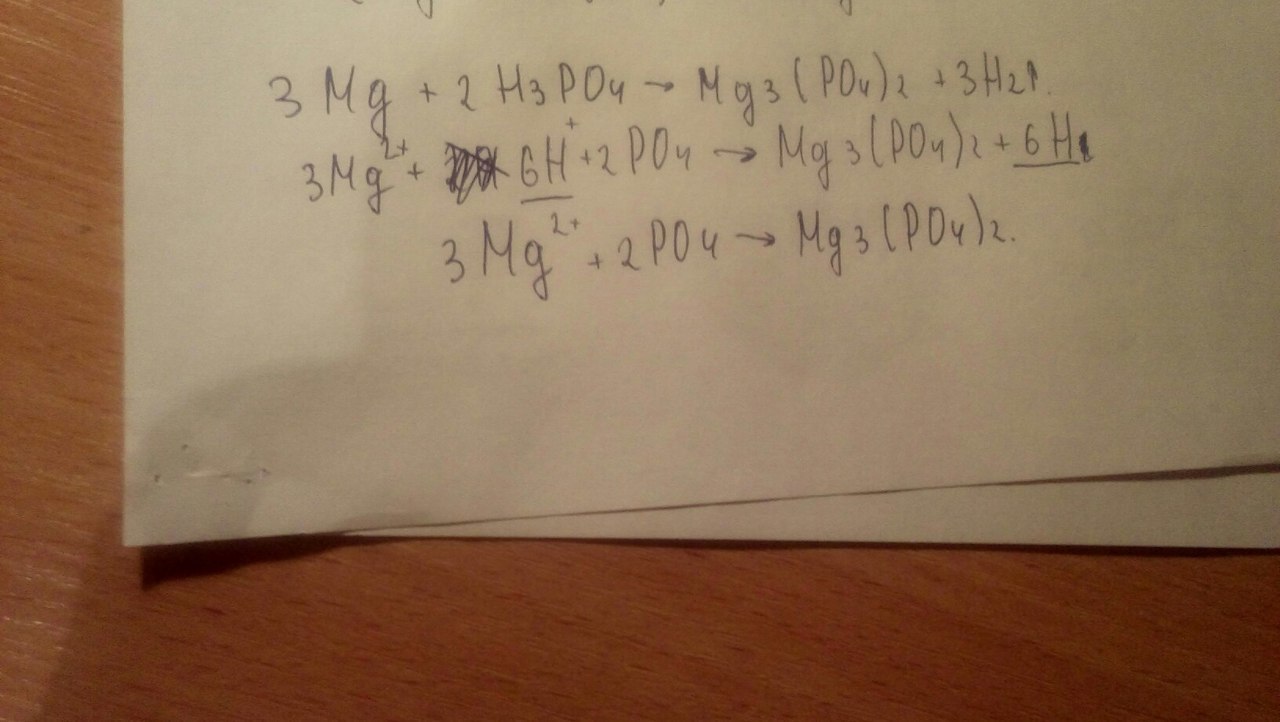 3 Mg + 2 H3PO4 → Mg3(PO4)2 + 3H2↑.
3Mg2+ + 6H+ + 2 PO4 → Mg3(PO4)2 + 6H
3 Mg2+ + 2 PO4 → Mg3(PO4)2.